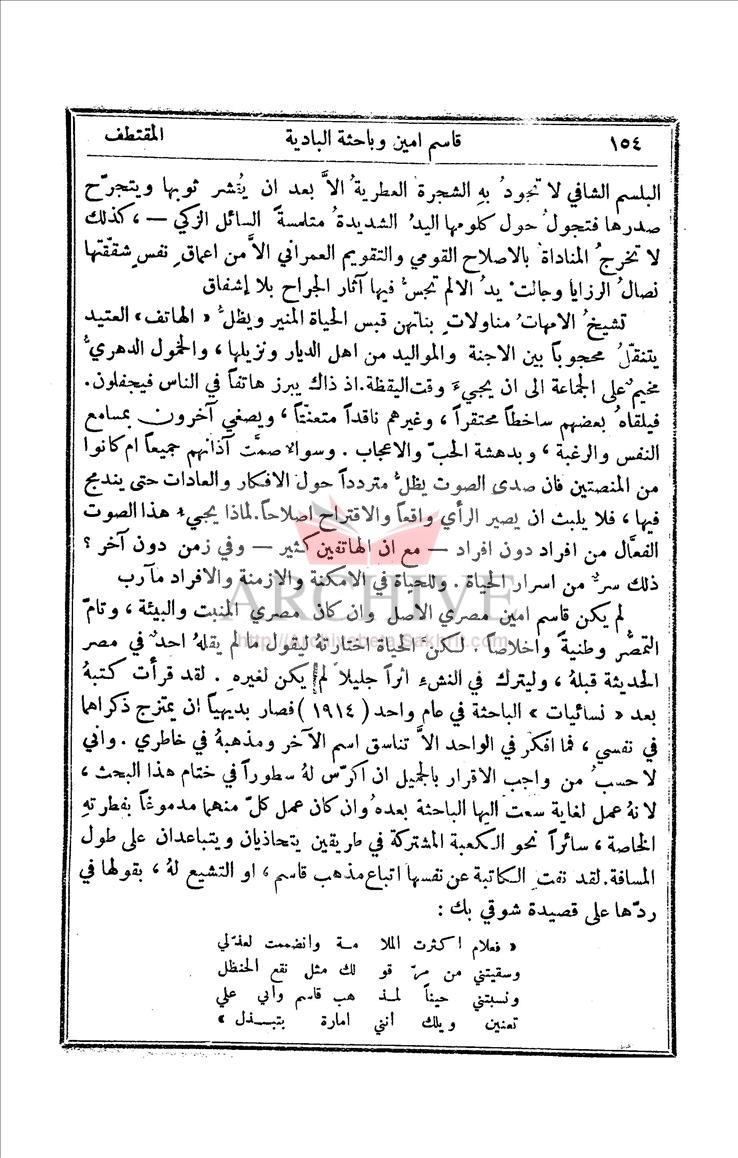 ١٥٤ قاسم امين وباحثة البادية المقتطف
البلسم الشافي لا تجودُ بهِ الشجرة العطرية ُ الاَّ بعد ان يُقشر ثوبها ويتجرَّح
صدرها فتجولُ حول كلومها اليدُ الشديدة ُ متلمسةً السائل الزكي — ، كذلك
لا تخرجُ المناداة بالاصلاح القومي والتقويم العمراني الاَّ من اعماق ِ نفسٍ شققتها
نصالُ الرزايا وجالتْ يدُ الالم تجسُّ فيها آثار الجراح بلا إشفاق
تشيخُ الامهاتُ مناولاتٍ بناتهن قبس الحياة المنير ويظلُّ « الهاتف » العتيد
يتنقلُ محجوباً بين الاجنة والمواليد من اهل الديار ونزيلها ، والخمول الدهريُّ
مخيمٌ على الجماعة الى ان يجيءَ وقت اليقظة. اذ ذاك يبرز هاتفاً في الناس فيجفلون.
فيلقاهُ بعضهم ساخطاً محتقراً ، وغيرهم ناقداً متعنتاً ، ويصغي آخرون بمسامع
النفس والرغبة ، وبدهشة الحبّ والاعجاب . وسوالا صمَّت آذانهم جميعاً ام كانوا
من المنصتين فان صدى الصوت يظلُّ متردداً حول الافكار والعادات حتى يندمج
فيها ، فلا يلبث ان يصير الرأي واقعاً والاقتراح اصلاحاً. لماذا يجيءُ هذا الصوت
الفعَّال من افراد دون افراد — مع ان الهاتفين كثير — وفي زمن دون آخر ؟
ذلك سرٌّ من اسرار الحياة . وللحياة في الامكنة والازمنة والافراد مآرب
ARCHIVE
لم يكن قاسم امين مصري الاصل وان كان مصري المنبت والبيئة ، وتامّ
http://Archivebeta.Sakhrit.com
التمصُّر وطنيةً واخلاصاً . لكنَّ الحياة اختارتهُ ليقول ما لم يقلهُ احدٌ في مصر
الحديثة قبلهُ ، وليترك في النشء اثراً جليلاً لم يكن لغيرهِ . لقد قرأت كتبهُ
بعد « نسائيات » الباحثة في عام واحد ( ١٩١٤ ) فصار بديهياً ان يمتزج ذكراهما
في نفسي ، فما افكر في الواحد الاَّ تناسق اسم الآخر ومذهبهُ في خاطري . واني
لاحسبُ من واجب الاقرار بالجميل ان اكرّس لهُ سطوراً في ختام هذا البحث ،
لانهُ عمل لغاية سعت اليها الباحثة بعدهُ وان كان عمل كلّ منهما مدموغاً بفطرتهِ
الخاصة ، سائراً نحو الكعبة المشتركة في طريقين يتحاذيان ويتباعدان على طول
المسافة. لقد نفت الكاتبة عن نفسها اتباع مذهب قاسم ، او التشيع لهُ ، بقولها في
ردّها على قصيدة شوقي بك :
« فعلام اكثرت الملا مـة وانضممت لعذّلي
وسقيتني من مرّ قو لك مثل نقع الحنظل
ونسبتني حيناً لمـذ هب قاسم واني علي
تعنين ويلك انني امارة بتبـذل »